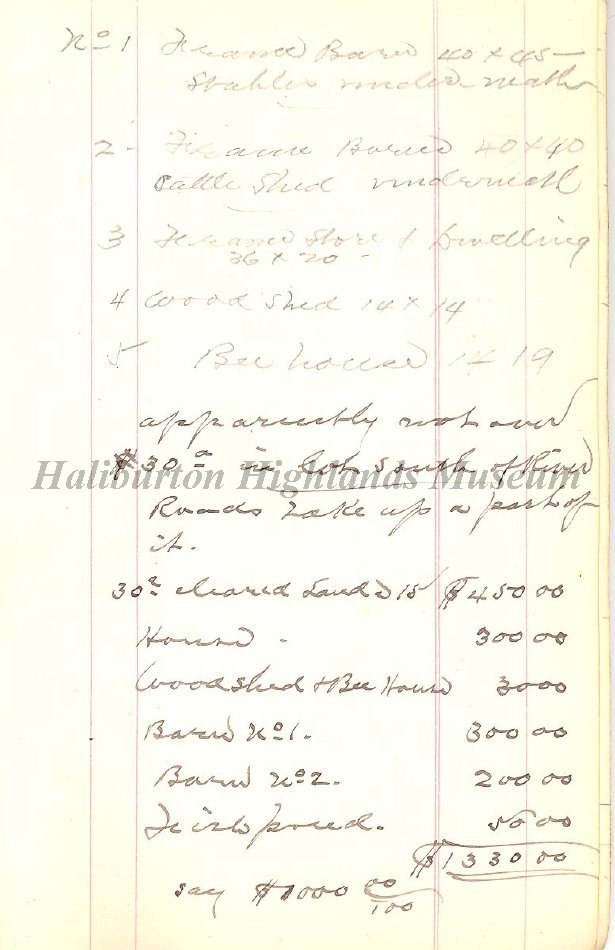 No 1 Frame Barn 40 x 45 -
Stables underneath
2 - Frame Barn 40 x 40
Cattle Shed underneath
3 Frame Store & Dwelling
36 x 20 -
4 Wood Shed 14 x 14
5 Bee house 14 x 19
apparently not over
$30a in Lot South of River
Haliburton Highlands Museum
Roads take up a part of
it.
30a cleared Land @ 15/ $450 00
House - 300 00
Woodshed & Bee House 30 00
Barn No 1. 300 00
Barn No 2. 200 00
Fish pond. 50 00
$1330 00
say $1000 00/100